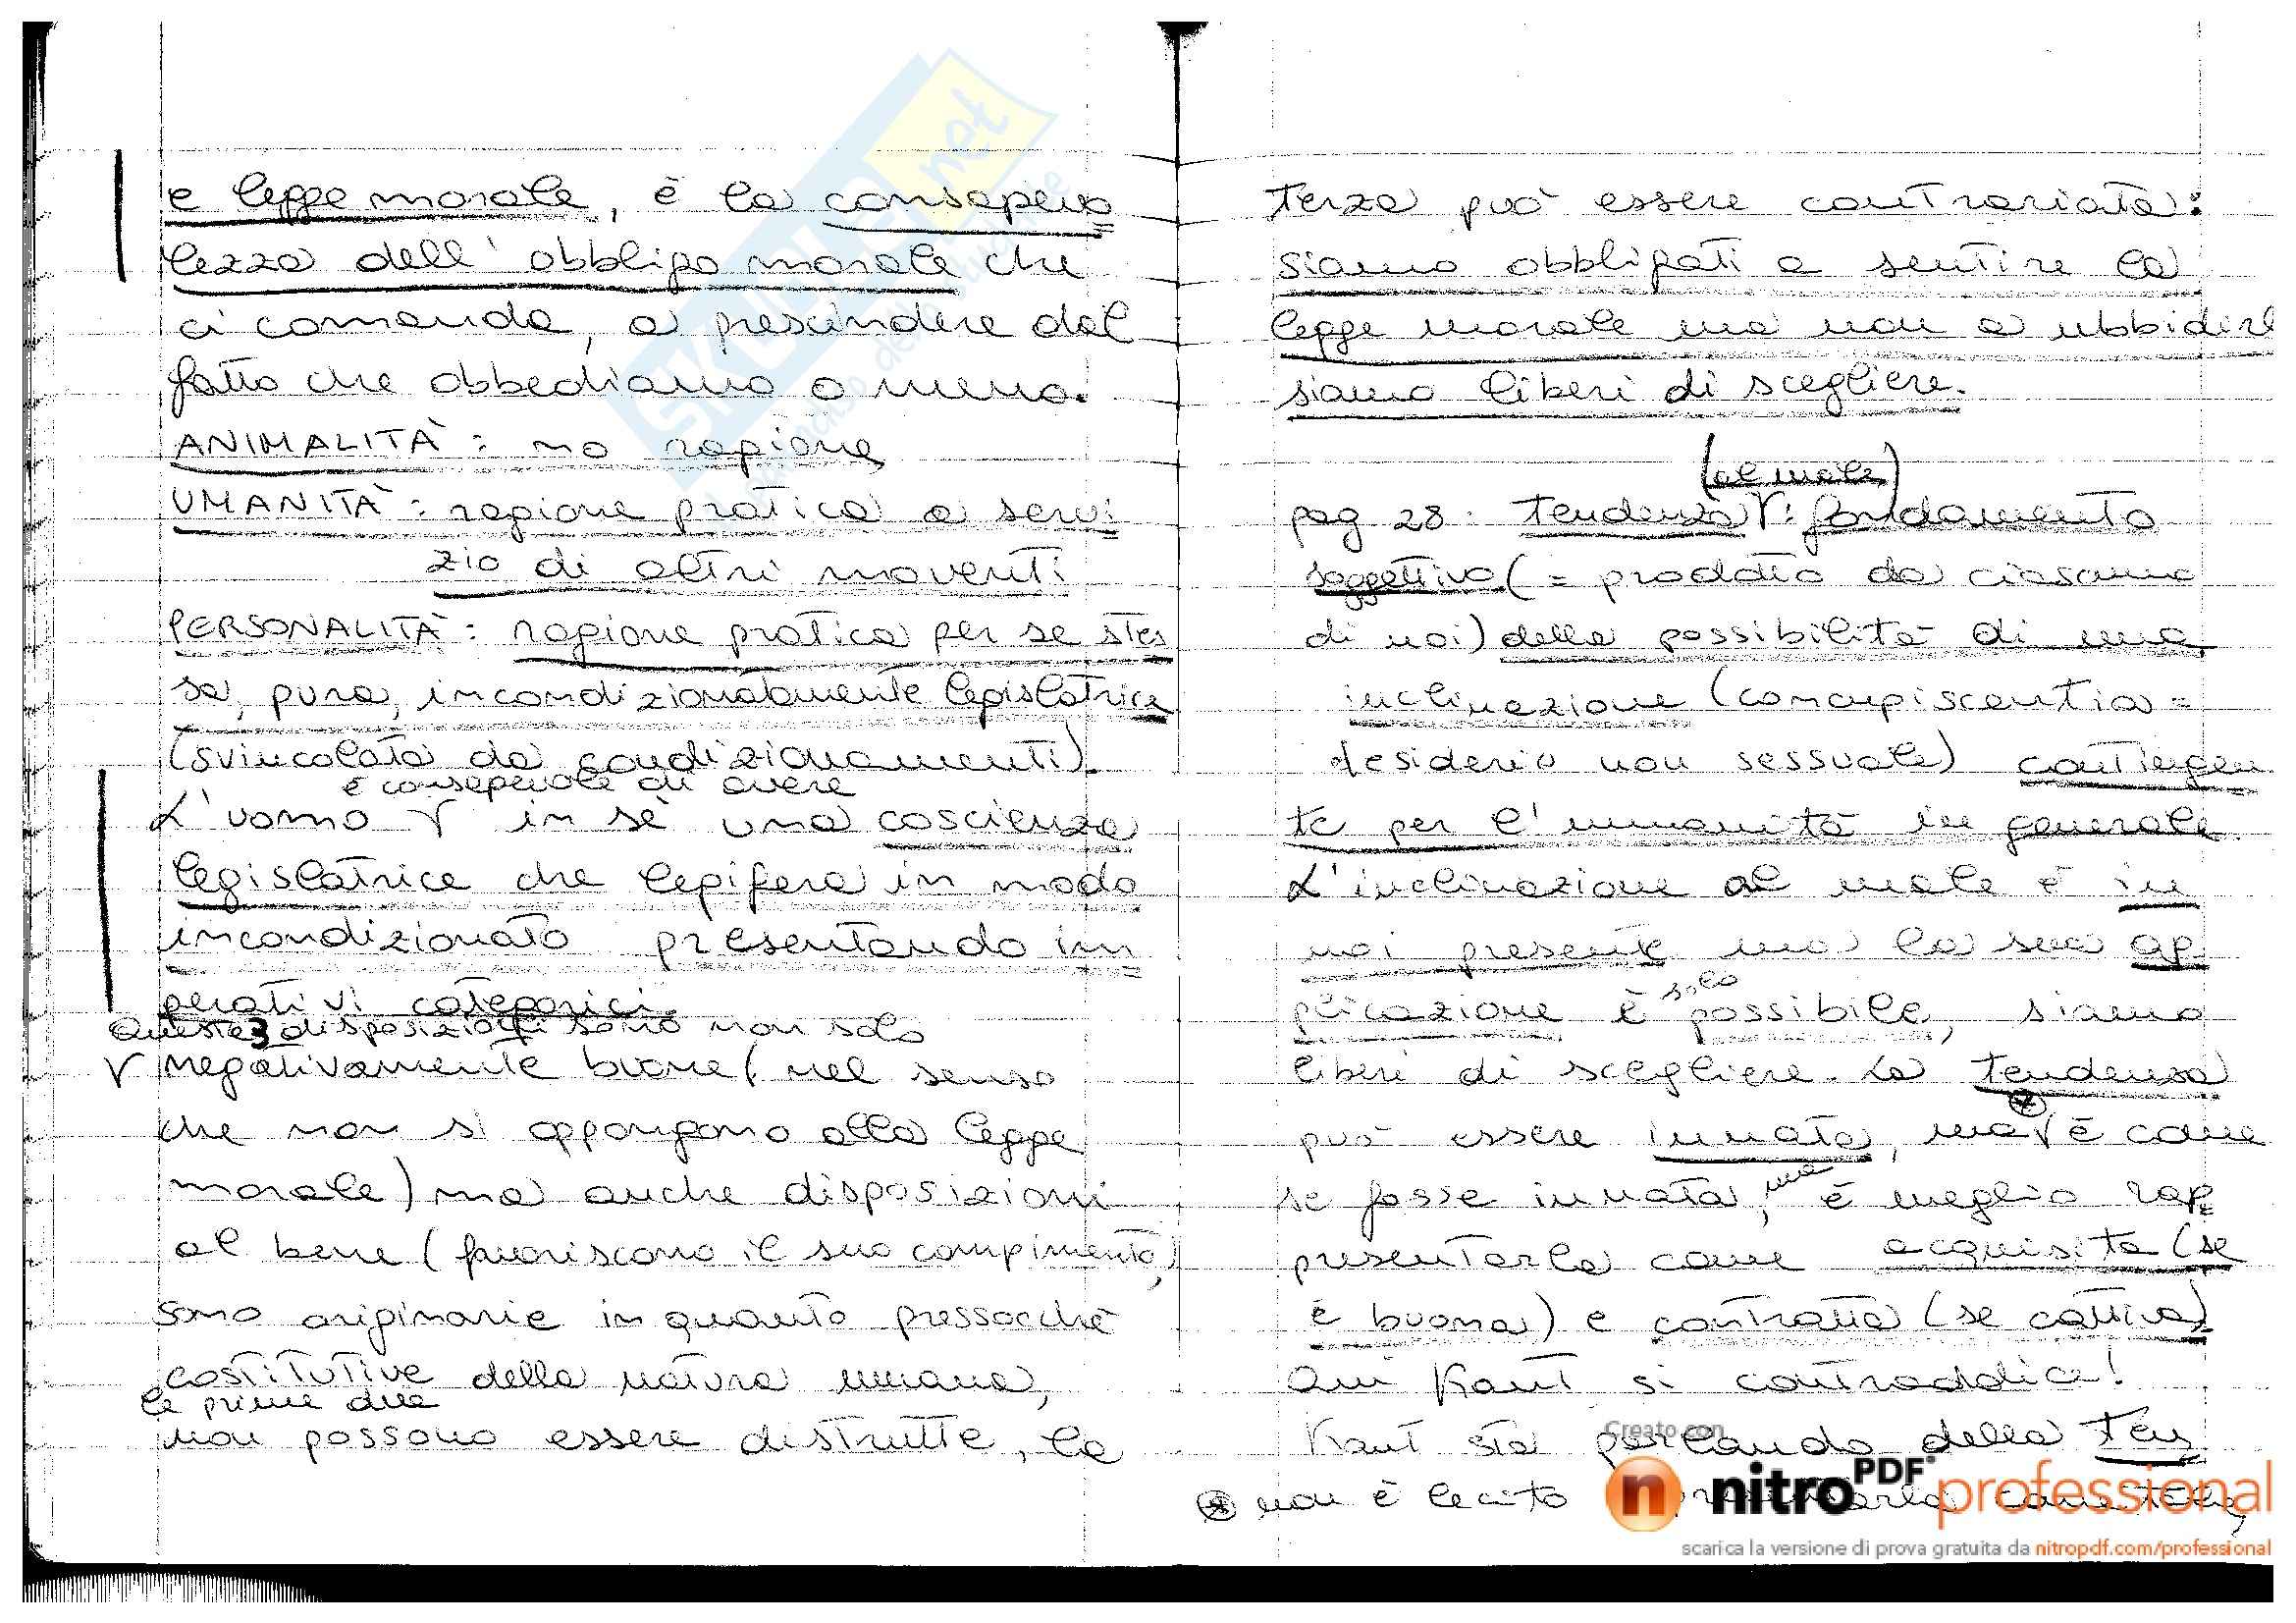 e legge morale, è la consapevo
lezza dell'obbligo morale che
ci comanda, a prescindere dal
fatto che obbediamo o meno.
ANIMALITÀ: no ragione
UMANITÀ: ragione pratica a servi
zio di altri moventi
PERSONALITÀ: ragione pratica per se stes
sa, pura, incondizionatamente legislatrice
(svincolata da condizionamenti).
è consapevole di avere
L'uomo V in sè una coscienza
legislatrice che legifera in modo
incondizionato presentando im
perativi categorici.
Queste 3 disposizioni sono non solo
V negativamente buone (nel senso
che non si oppongono alla legge
morale) ma anche disposizioni
al bene (favoriscono il suo compimento),
sono originarie in quanto pressocchè
costitutive della natura umana,
le prime due
non possono essere distrutte, la
terza può essere contrariata:
siamo obbligati a sentire la
legge morale ma non a ubbidire
siamo liberi di scegliere.
(al male)
pag 28: tendenza V: fondamento
soggettivo (= prodotto da ciascuno
di noi) della possibilità di una
inclinazione (concupiscentia =
desiderio non sessuale) contingen
te per l'umanità in generale.
L'inclinazione al male è in
noi presente ma la sua ap
solo
plicazione è possibile, siamo
liberi di scegliere. La tendenza
può essere innata, ma V è come
se fosse innata, ma è meglio rap
presentarla come acquisita (se
è buona) e contratta (se cattiva)
Qui Kant si contraddice!
Kant sta parlando della ten
* non è lecito come tale,
SKUOLA.net
Creato con
nitro PDF professional
scarica la versione di prova gratuita da nitropdf.com/professional